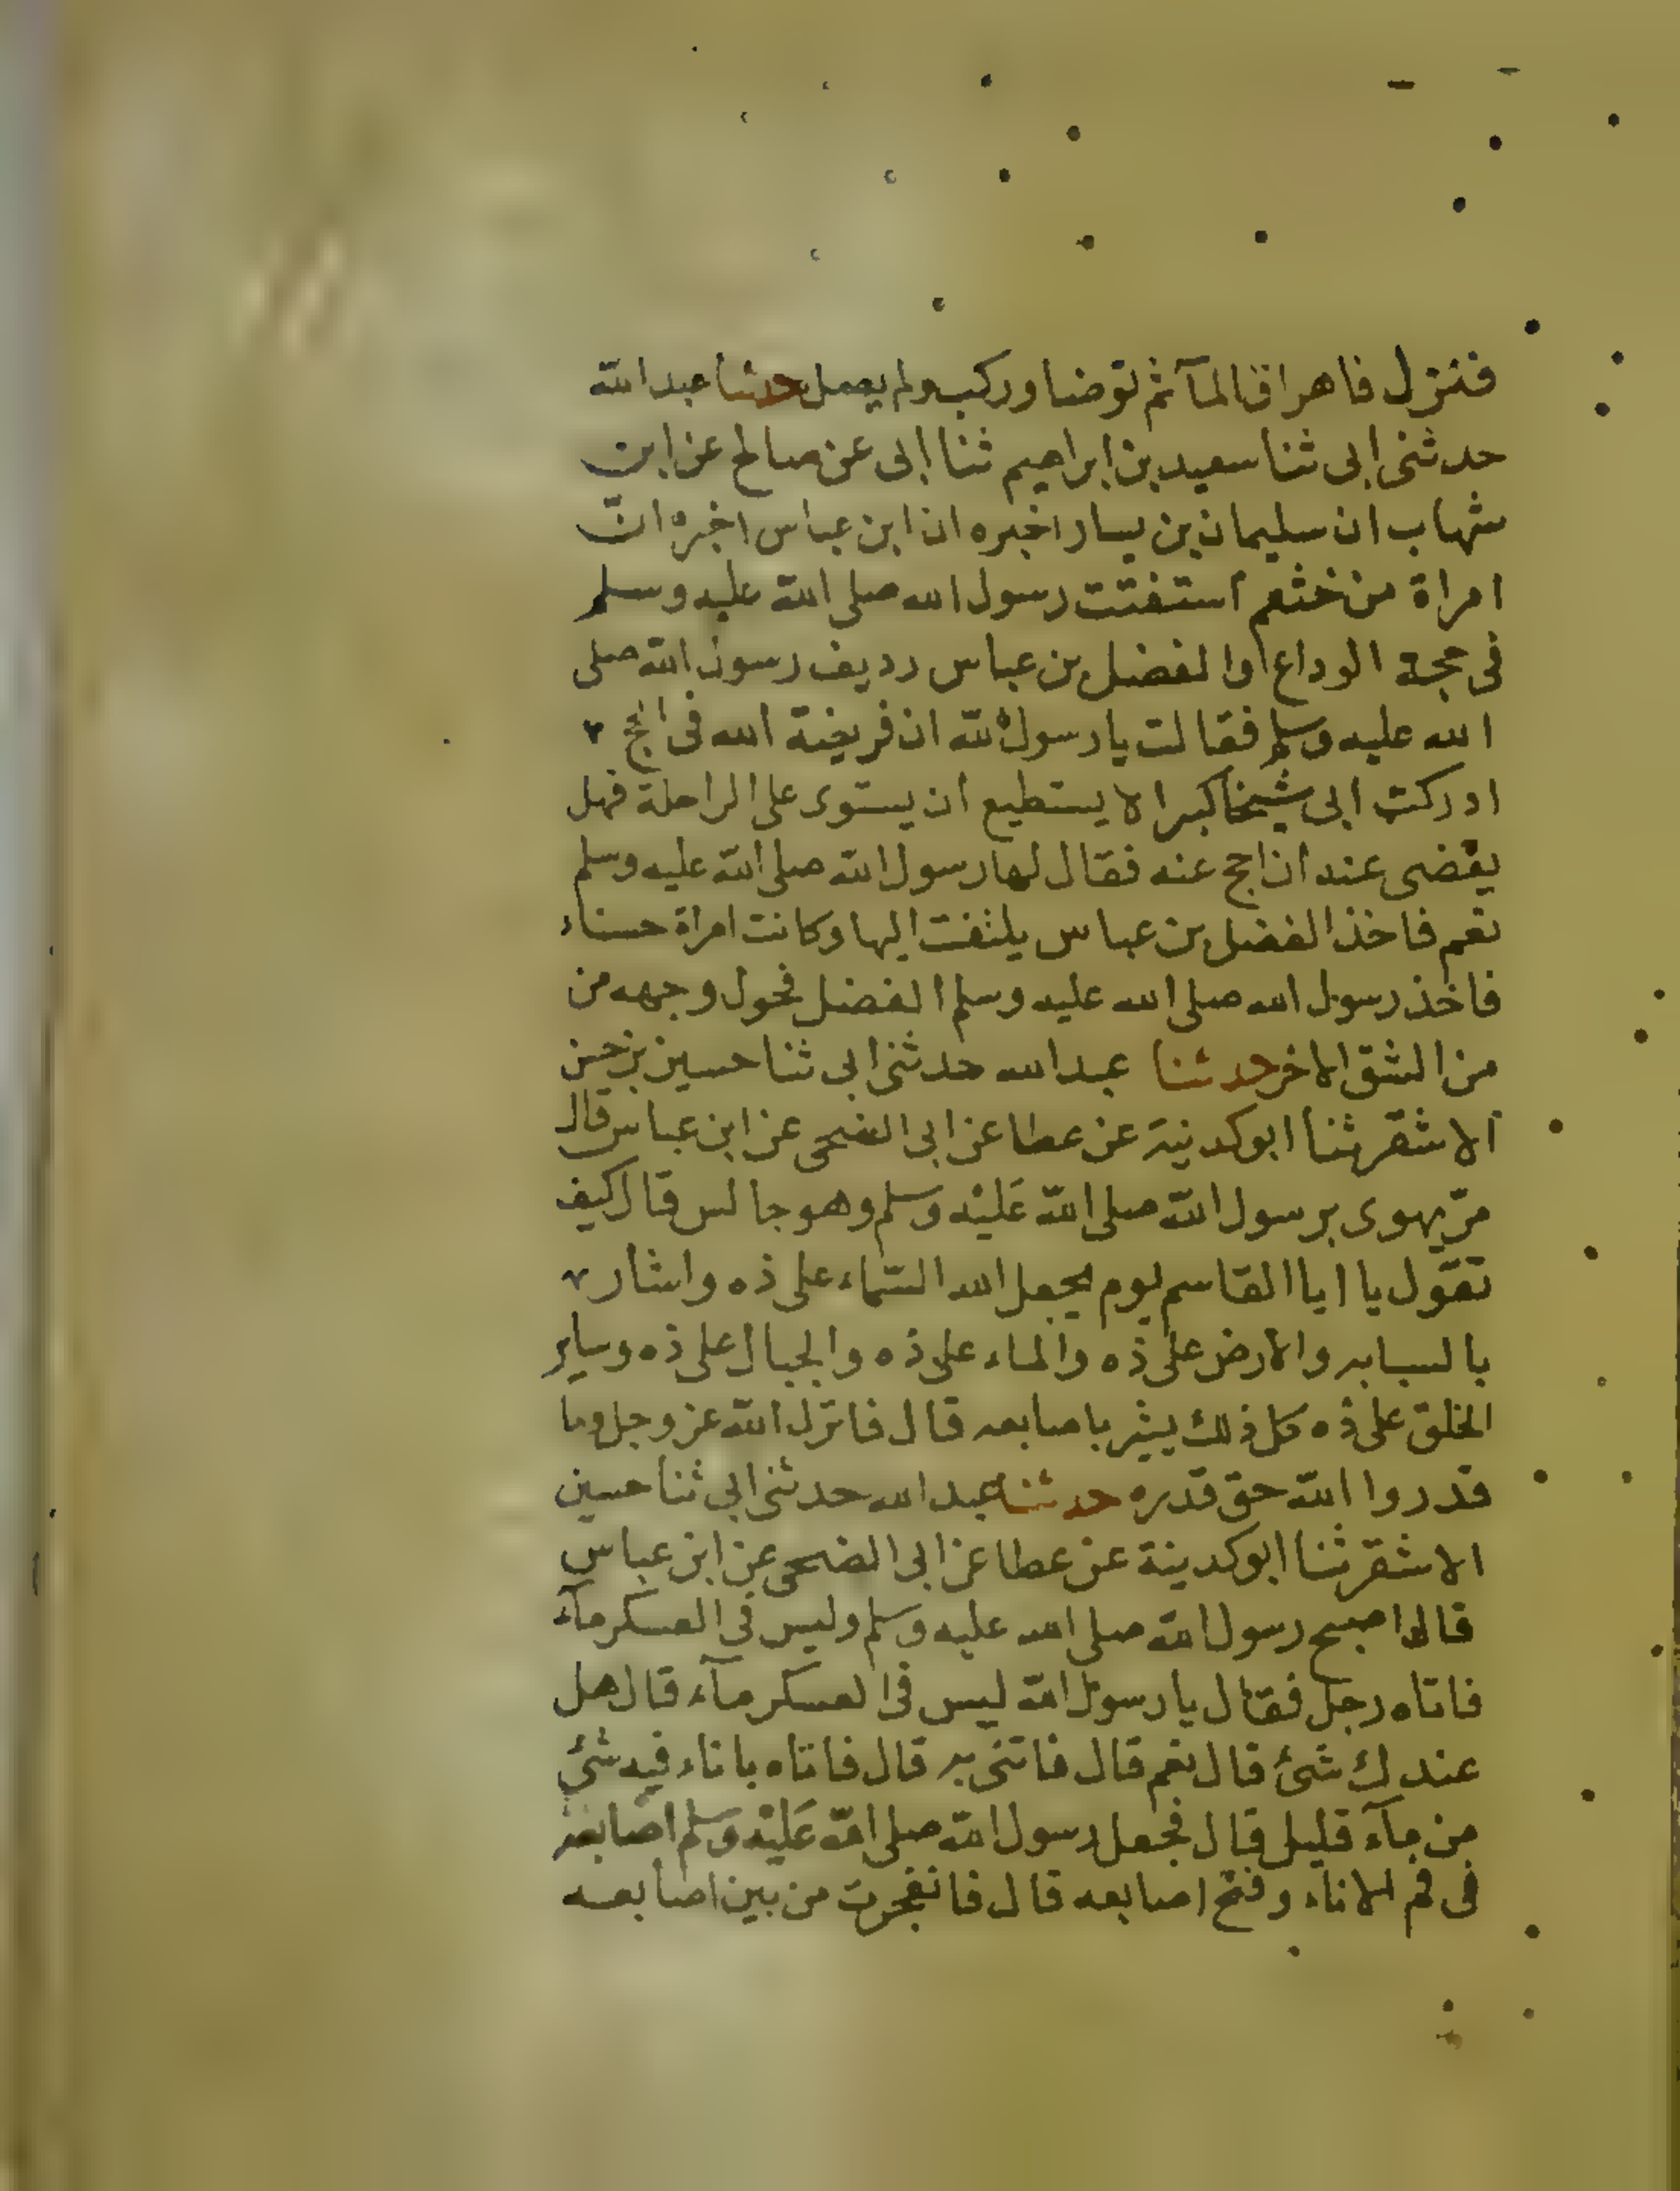 فنزل فاهراق الماآ ثم توضا وركب ولم يصل حدثنا عبد الله
حدثنى ابى ثنا سعيد بن ابراهيم ثنا ابى عن صالح عن ابن
شهاب ان سليمان بن يسار اخبره ان ابن عباس اخبره ان
امراة من خثعم استفتت رسول الله صلى الله عليه وسلم
فى حجة الوداع والفضل بن عباس رديف رسول الله صلى
الله عليه وسلم فقالت يا رسول الله ان فريضة الله فى الحج
ادركت ابى شيخا كبيرا لا يستطيع ان يستوى على الراحلة فهل
يقضى عنه ان احج عنه فقال لها رسول الله صلى الله عليه وسلم
نعم فاخذ الفضل بن عباس يلتفت اليها وكانت امراة حسناء
فاخذ رسول الله صلى الله عليه وسلم الفضل فحول وجهه من
من الشق الاخر حدثنا عبد الله حدثنى ابى ثنا حسين بن حسن
الاشقر ثنا ابو كدينة عن عطا عن ابى الضحى عن ابن عباس قال
مرّ يهودى برسول الله صلى الله عَليْه وسلم وهو جالس قال كيف
تقول يا ابا القاسم يوم يجعل الله السّماء على ذه واشار
بالسبابه والارض على ذه والماء على ذه والجبال على ذه وساير
الخلق على ذه كل ذلك يشير باصابعه قال فانزل الله عز وجل وما
قدروا الله حق قدره حدثنا عبد الله حدثنى ابى ثنا حسين
الاشقر ثنا ابو كدينة عن عطا عن ابى الضحى عن ابن عباس
قال اصبح رسول الله صلى الله عليه وسلم وليس فى العسكر مآء
فاتاه رجل فقال يا رسول الله ليس فى العسكر مآء قال هل
عندك شئ قال نعم قال فاتنى به قال فاتاه باناء فيه شئ
من مآء قليل قال فجعل رسول الله صلى الله عَليْه وَسلم اصابعه
فى فم الاناء وفتح اصابعه قال فانفجرت من بين اصابعه